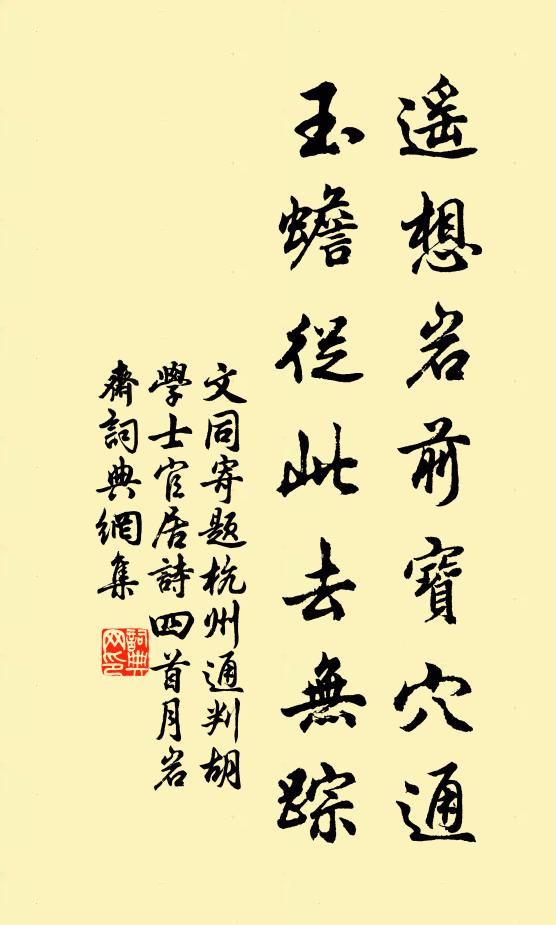 遥想岩前寶穴通
玉蟾從此去無踪
文同寄題杭州通判胡
學士官居詩四首月岩
齋詞典網集
詞典网印